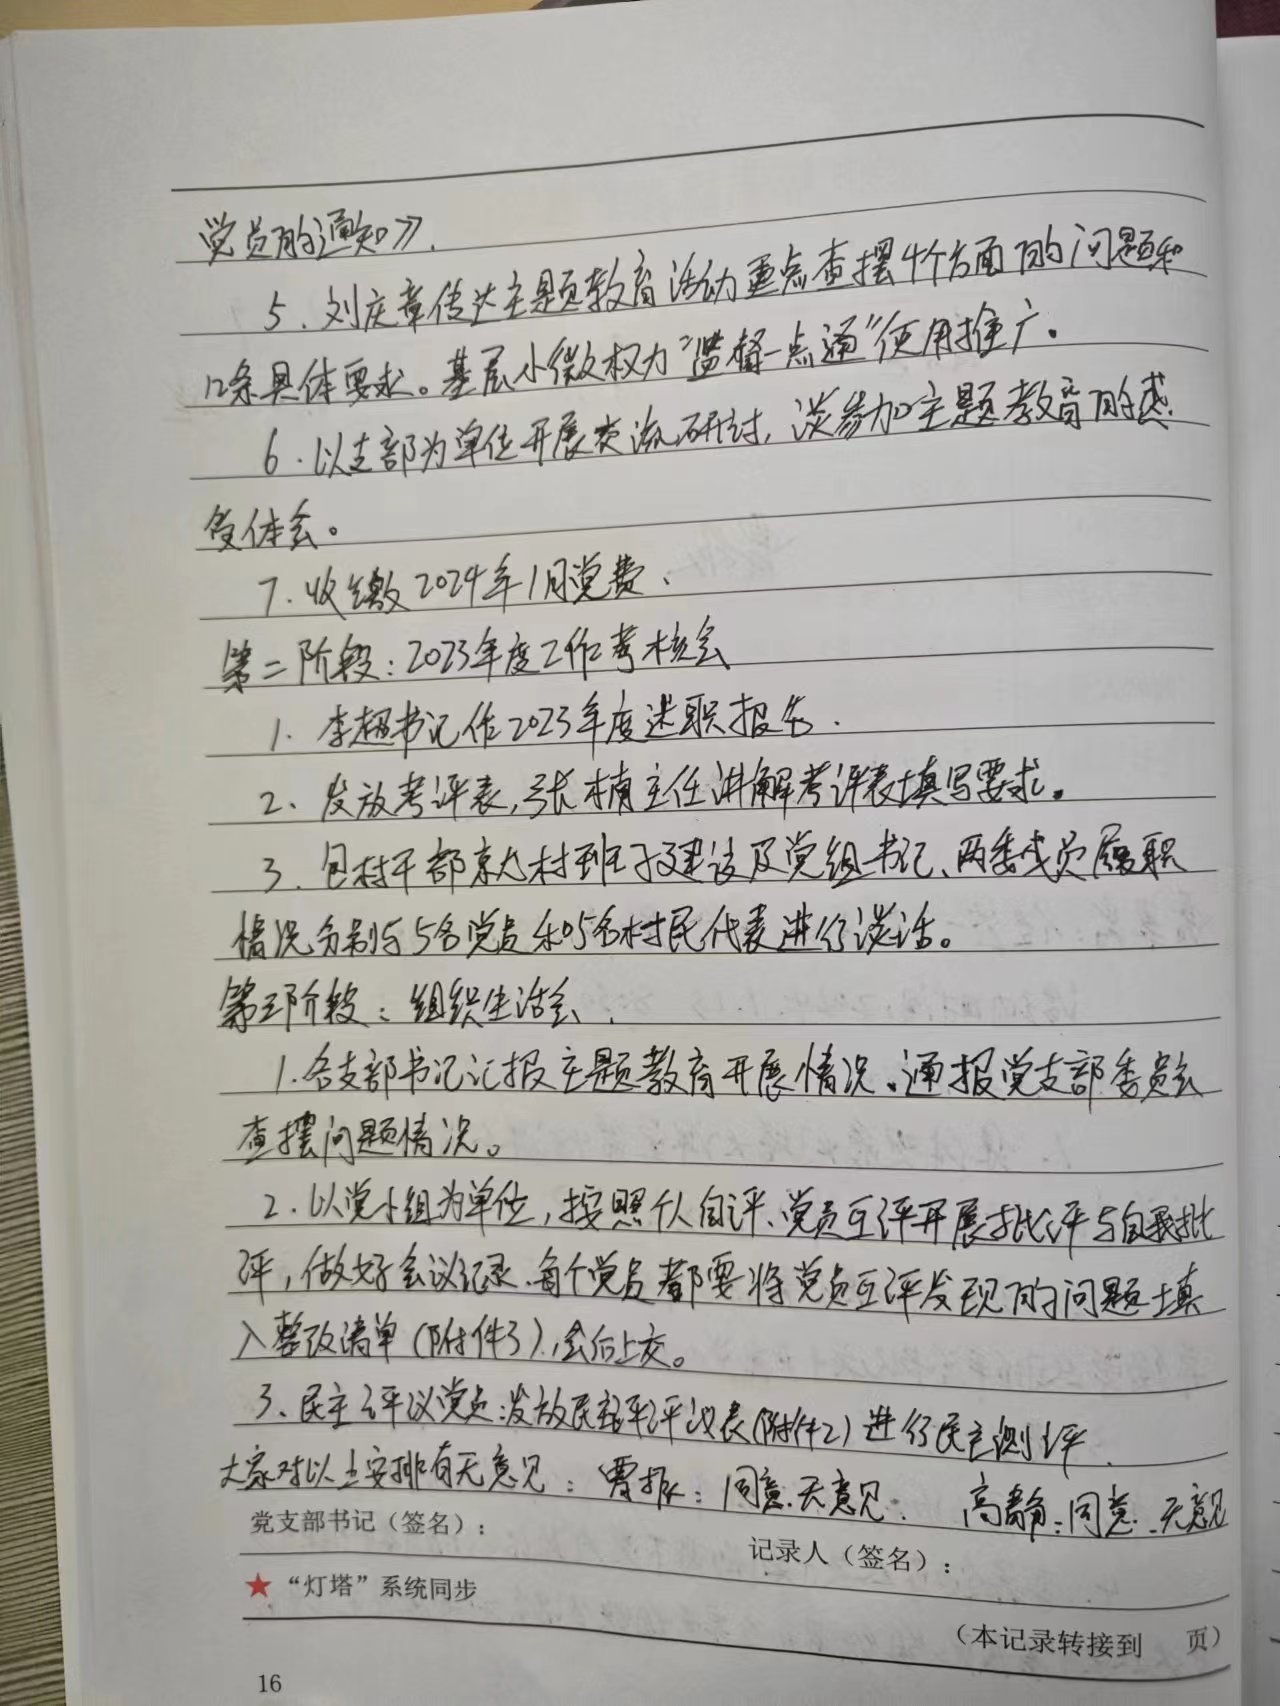 党员的通知》.
5.刘庆章传达主题教育活动重点查摆4个方面的问题和
12条具体要求。基层小微权力“监督一点通”使用推广。
6.以支部为单位开展交流研讨,谈参加主题教育的感
受体会。
7.收缴2024年1月党费.
第二阶段:2023年度工作考核会
1.李超书记作2023年度述职报告.
2、发放考评表,张楠主任讲解考评表填写要求。
3.包村干部就村班子建设及党组书记、两委成员履职
情况分别与5名党员和5名村民代表进行谈话。
第三阶段:组织生活会.
1.各支部书记汇报主题教育开展情况。通报党支部委员会
查摆问题情况。
2.以党小组为单位,按照个人自评、党员互评开展批评与自我批
评,做好会议记录.每个党员都要将党员互评发现的问题填
入整改清单(附件3),会后上交。
3、民主评议党员:发放民主评议表(附件2)进行民主测评.
大家对以上安排有无意见:曹振:同意.无意见. 高静:同意.无意见
党支部书记(签名):
记录人(签名):
★“灯塔”系统同步
(本记录转接到 页)
16